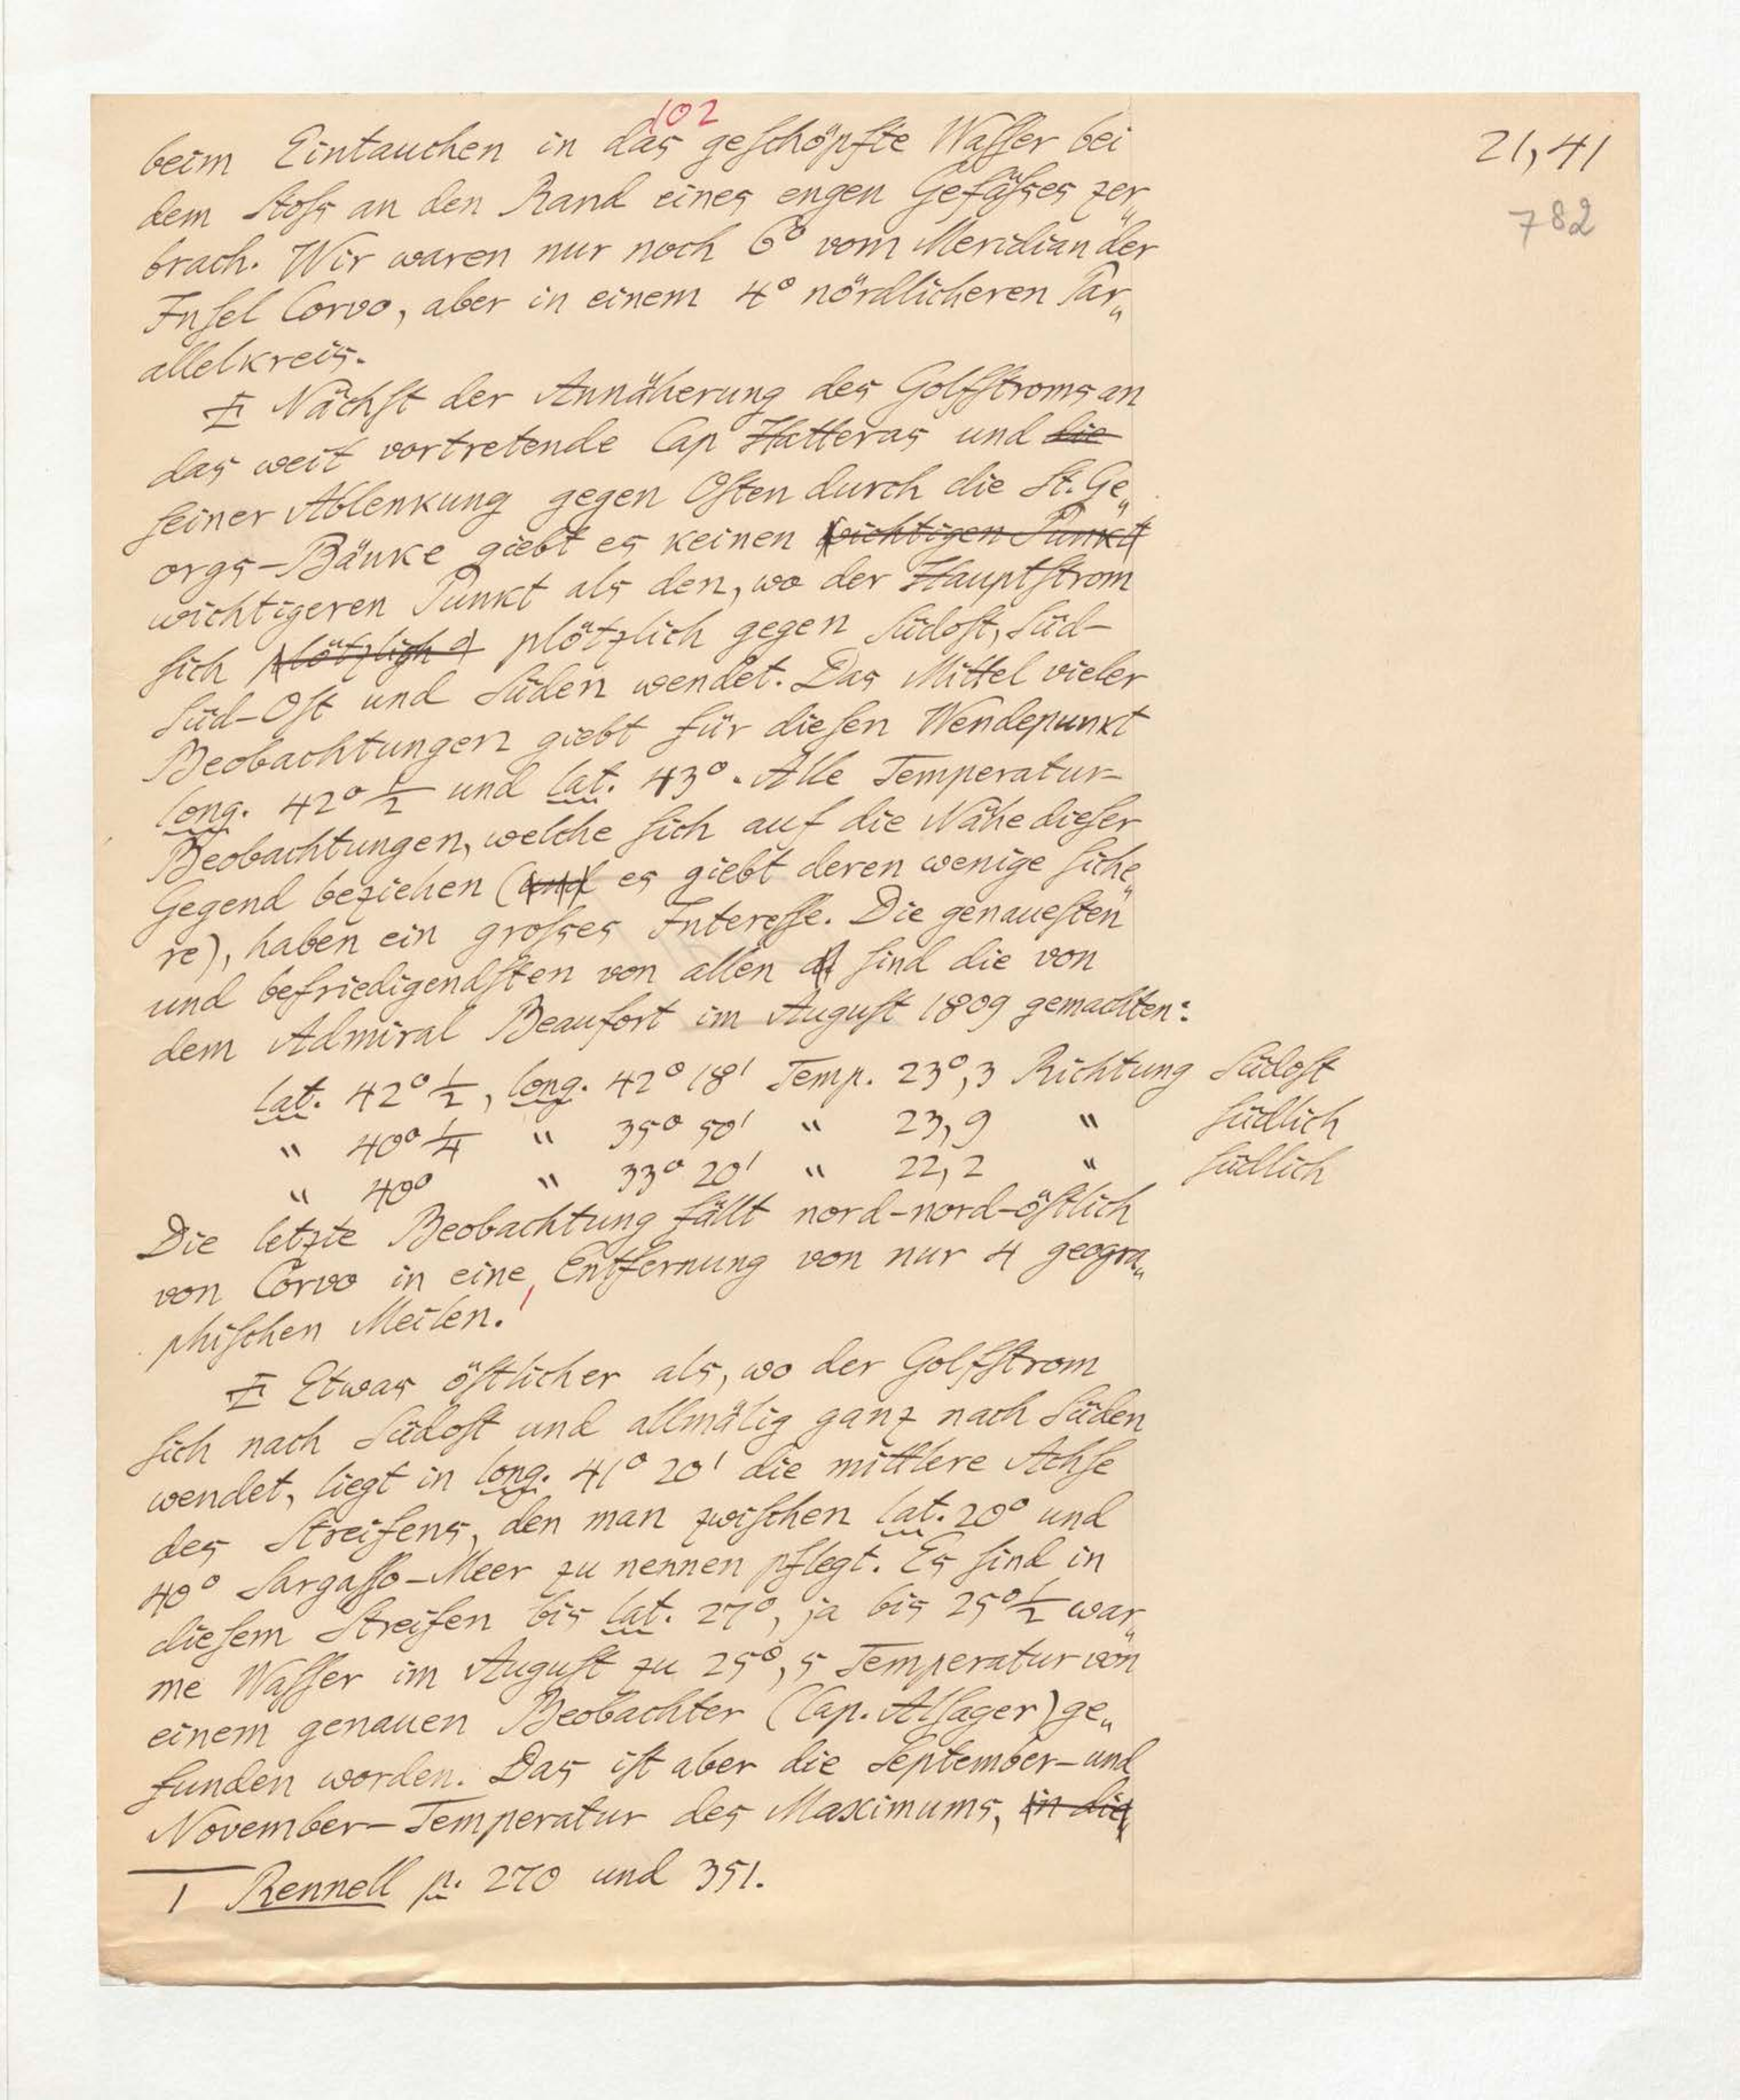 102
21,41
782
beim Eintauchen in das geschöpfte Wasser bei
dem Stoß an den Rand eines engen Gefäßes zer„
brach. Wir waren nur noch 6° vom Meridian der
Insel Corvo, aber in einem 4° nördlicheren Par„
allelkreis.
Nächst der Annäherung des Golfstroms an
das weit vortretende Cap Hatteras und die
seiner Ablenkung gegen Osten durch die St. Ge„
orgs-Bänke giebt es keinen wichtigen Punkt
wichtigeren Punkt als den, wo der Hauptstrom
sich plötzlich plötzlich gegen Südost, Süd-
Süd-Ost und Süden wendet. Das Mittel vieler
Beobachtungen giebt für diesen Wendepunkt
long. 42° 1/2 und lat. 43°. Alle Temperatur-
Beobachtungen, welche sich auf die Nähe dieser
Gegend beziehen (und es giebt deren wenige siche„
re), haben ein großes Interesse. Die genauesten
und befriedigendsten von allen sind die von
dem Admiral Beaufort im August 1809 gemachten:
lat. 42° 1/2, long. 42° 18' Temp. 23°,3 Richtung Südost
" 40° 1/4 " 35° 50' " 23,9 " südlich
" 40° " 33° 20' " 22,2 " südlich
Die letzte Beobachtung fällt nord-nord-östlich
von Corvo in eine Entfernung von nur 4 geogra„
phischen Meilen.¹
Etwas östlicher als, wo der Golfstrom
sich nach Südost und allmälig ganz nach Süden
wendet, liegt in long. 41° 20' die mittlere Achse
des Streifens, den man zwischen lat. 20° und
40° Sargasso-Meer zu nennen pflegt. Es sind in
diesem Streifen bis lat. 27°, ja bis 25° 1/2 war„
me Wasser im August zu 25°,5 Temperatur von
einem genauen Beobachter (Cap. Alsager) ge„
funden worden. Das ist aber die September- und
November-Temperatur des Maximums, in die
1 Rennell p. 270 und 351.